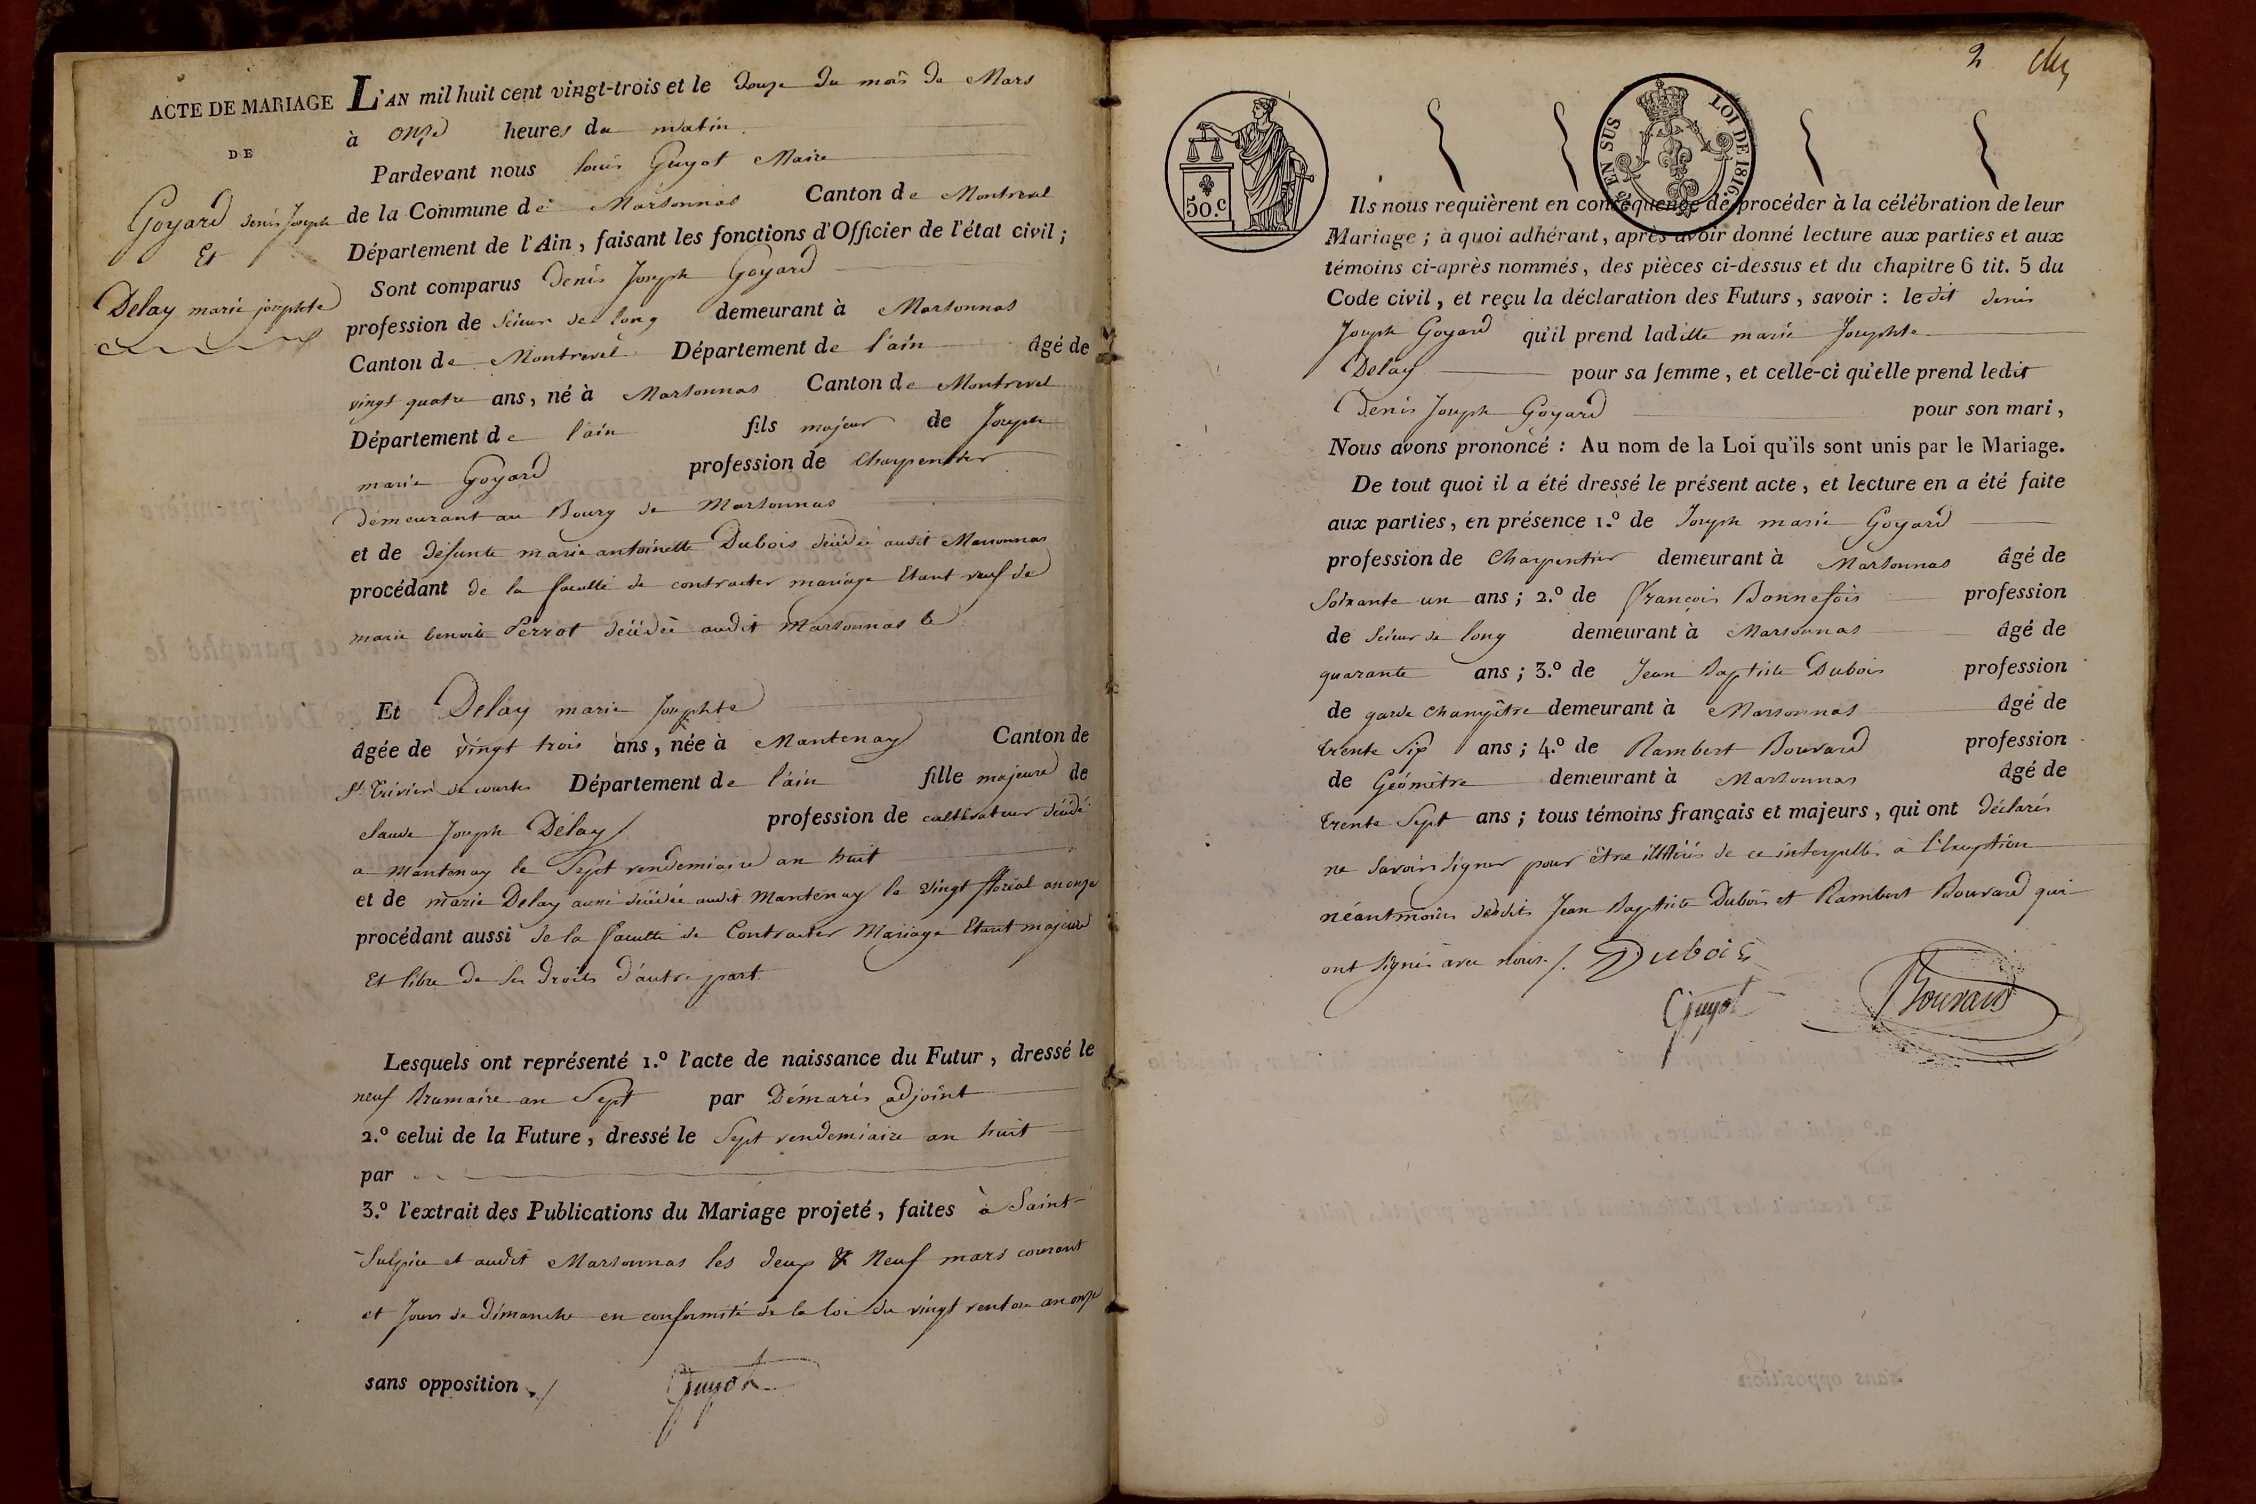 ACTE DE MARIAGE
DE
Goyard denis Joseph
Et
Delay marie josephte
L'AN mil huit cent vingt-trois et le douze du mois de Mars
à onze heures du matin
Pardevant nous Louis Guyot Maire
de la Commune de Marsonnas Canton de Montrevel
Département de l'Ain, faisant les fonctions d'Officier de l'état civil;
Sont comparus Denis Joseph Goyard
profession de Scieur de long demeurant à Marsonnas
Canton de Montrevel Département de l'ain âgé de
vingt quatre ans, né à Marsonnas Canton de Montrevel
Département de l'ain fils majeur de Joseph
marie Goyard profession de Charpentier
demeurant au Bourg de Marsonnas
et de défunte marie antoinette Dubois décédée audit Marsonnas
procédant de la faculté de contracter mariage Etant veuf de
marie benoite Perrot décédée audit Marsonnas le
Et Delay marie Josephte
âgée de vingt trois ans, née à Mantenay Canton de
St Trivier de courtes Département de l'ain fille majeure de
claude Joseph Delay profession de cultivateur décédé
a Mantenay le Sept vendemiaire an huit
et de marie Delay aussi décédée audit Mantenay le vingt floréal an onze
procédant aussi de la faculté de Contracter Mariage Etant majeure
Et libre de ses droits d'autre part
Lesquels ont représenté 1.º l'acte de naissance du Futur, dressé le
neuf Brumaire an Sept par Démaris adjoint
2.º celui de la Future, dressé le Sept vendemiaire an huit
par
3.º l'extrait des Publications du Mariage projeté, faites à Saint
Sulpice et audit Marsonnas les deux & Neuf mars courant
et Jours de Dimanche en conformité de la loi du vingt ventose an onze
sans opposition ./
Guyot
2
50.c
EN SUS
LOI DE 1816.
Ils nous requièrent en conséquence de procéder à la célébration de leur
Mariage; à quoi adhérant, après avoir donné lecture aux parties et aux
témoins ci-après nommés, des pièces ci-dessus et du chapitre 6 tit. 5 du
Code civil, et reçu la déclaration des Futurs, savoir: ledit denis
Joseph Goyard qu'il prend laditte marie Josephte
Delay pour sa femme, et celle-ci qu'elle prend ledit
Denis Joseph Goyard pour son mari,
Nous avons prononcé: Au nom de la Loi qu'ils sont unis par le Mariage.
De tout quoi il a été dressé le présent acte, et lecture en a été faite
aux parties, en présence 1.º de Joseph marie Goyard
profession de Charpentier demeurant à Marsonnas âgé de
Soixante un ans; 2.º de François Bonnefois profession
de Scieur de long demeurant à Marsonnas âgé de
quarante ans; 3.º de Jean Baptiste Dubois profession
de garde champêtre demeurant à Marsonnas âgé de
trente Six ans; 4.º de Rambert Bouvard profession
de Géomètre demeurant à Marsonnas âgé de
trente Sept ans; tous témoins français et majeurs, qui ont déclarés
ne Savoir Signer pour être illitérés de ce interpellés a l'Exception
néantmoins desdits Jean Baptiste Dubois et Rambert Bouvard qui
ont Signés avec nous ./. Dubois
Guyot
Bouvard